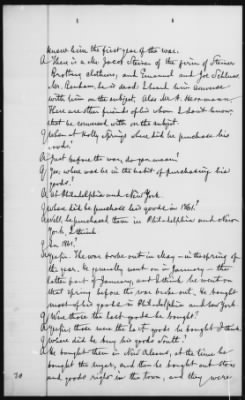 knew him the first year of the war.
A. There is a Mr. Jacob Steiner of the firm of Steiner
Brothers clothiers, and Emanuel and Joe Schloss
Mr. Bonham, he is dead; I heard him converse
with him on the subject. Also Mr. A. Herrmann.
There are other friends of his whom I don't know,
that he conversed with on the subject.
Q. When at Holly Springs where did he purchase his
goods?
A. Just before the war, do you mean?
Q. Yes, when was he in the habit of purchasing his
goods?
A. At Philadelphia and New York.
Q. Where did he purchase his goods in 1861?
A. Well, he purchased them in Philadelphia and New
York, I think.
Q. In 1861?
A. Yes sir. The war broke out in May - in the spring of
the year. He generally went on in January - the
latter part of January, and I think he went on
that spring before the war broke out. He bought
most of his goods in Philadelphia and New York
Q. Were those the last goods he bought?
A. Yes sir; those were the last goods he bought I think.
Q. Where did he buy his goods South?
A. He bought them in New Orleans, at the time he
bought the sugar, and then he bought out stores
and goods right in the town, and they were